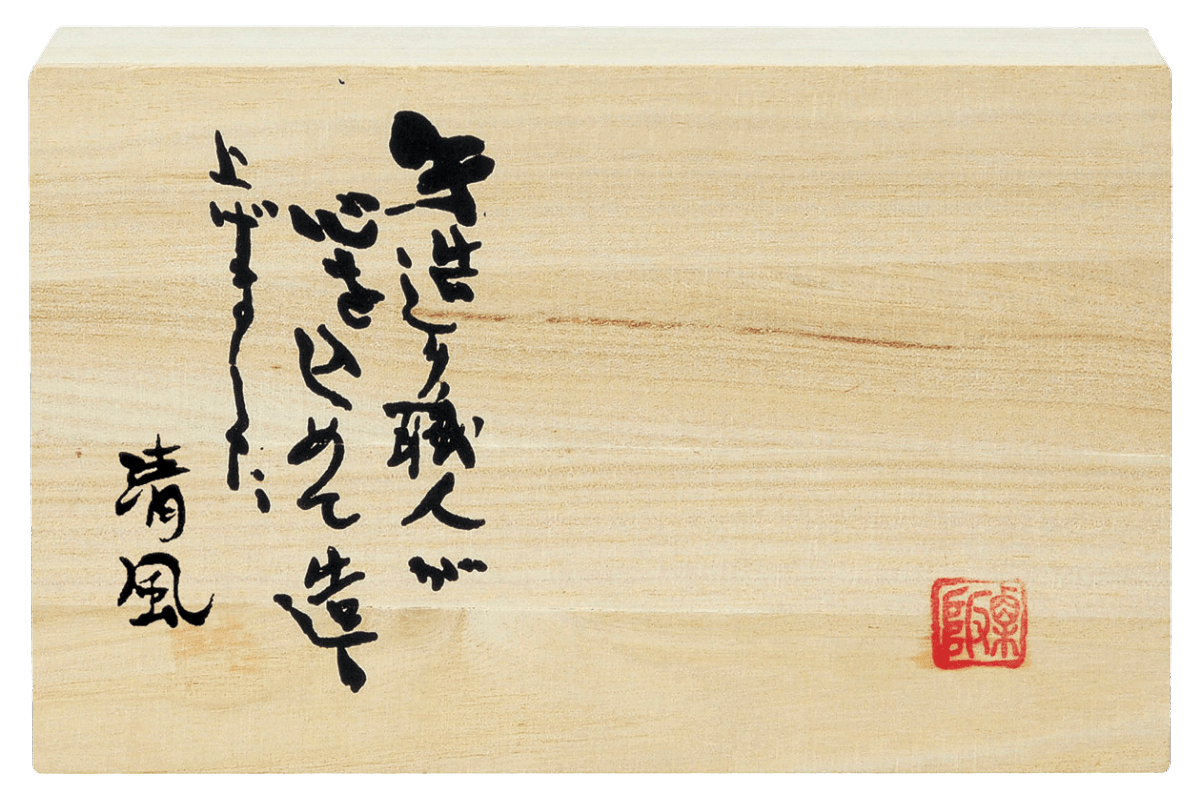 手造り職人が
心をひめて造り
上げました
清風